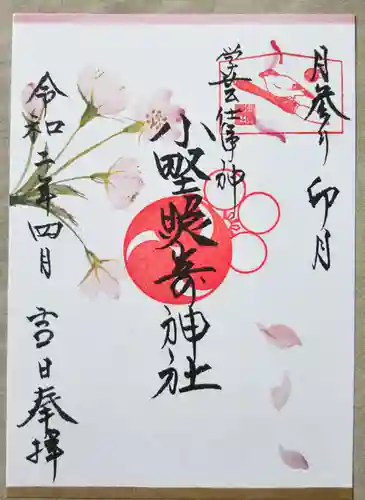 月参り 卯月
学芸仕事神
小野照崎神社
令和二年四月 吉日奉拝